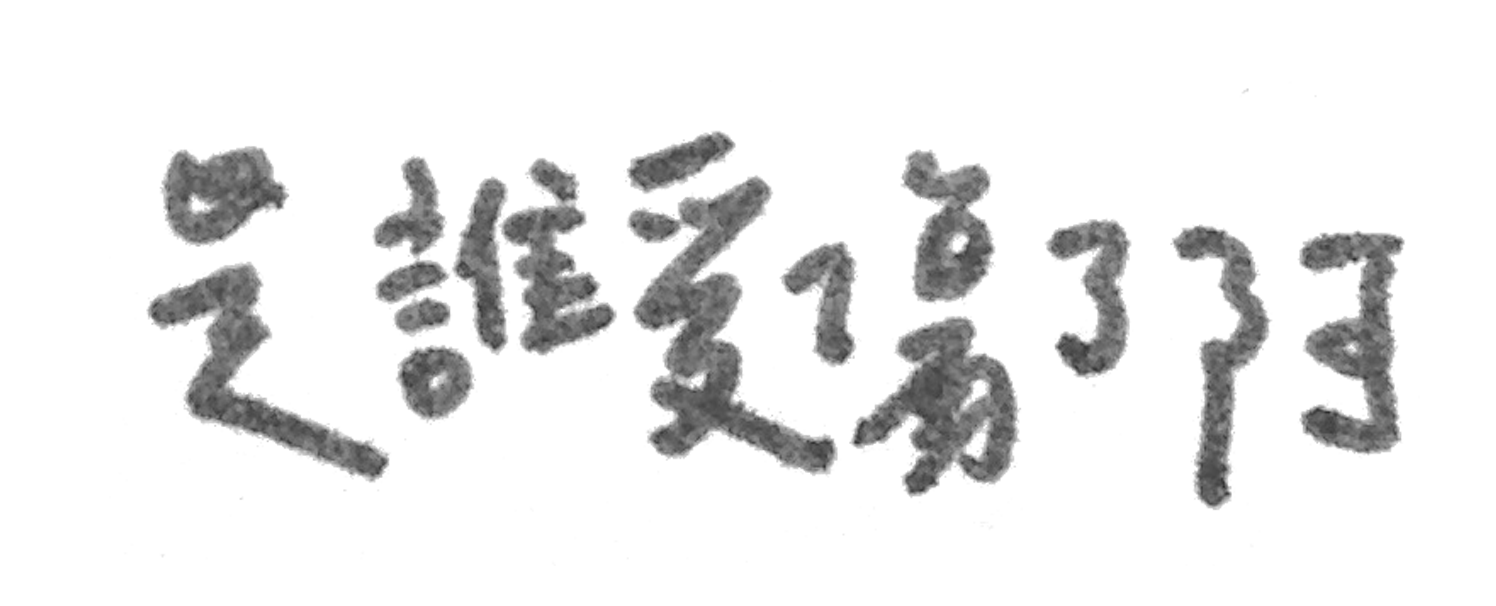 是誰受傷了阿